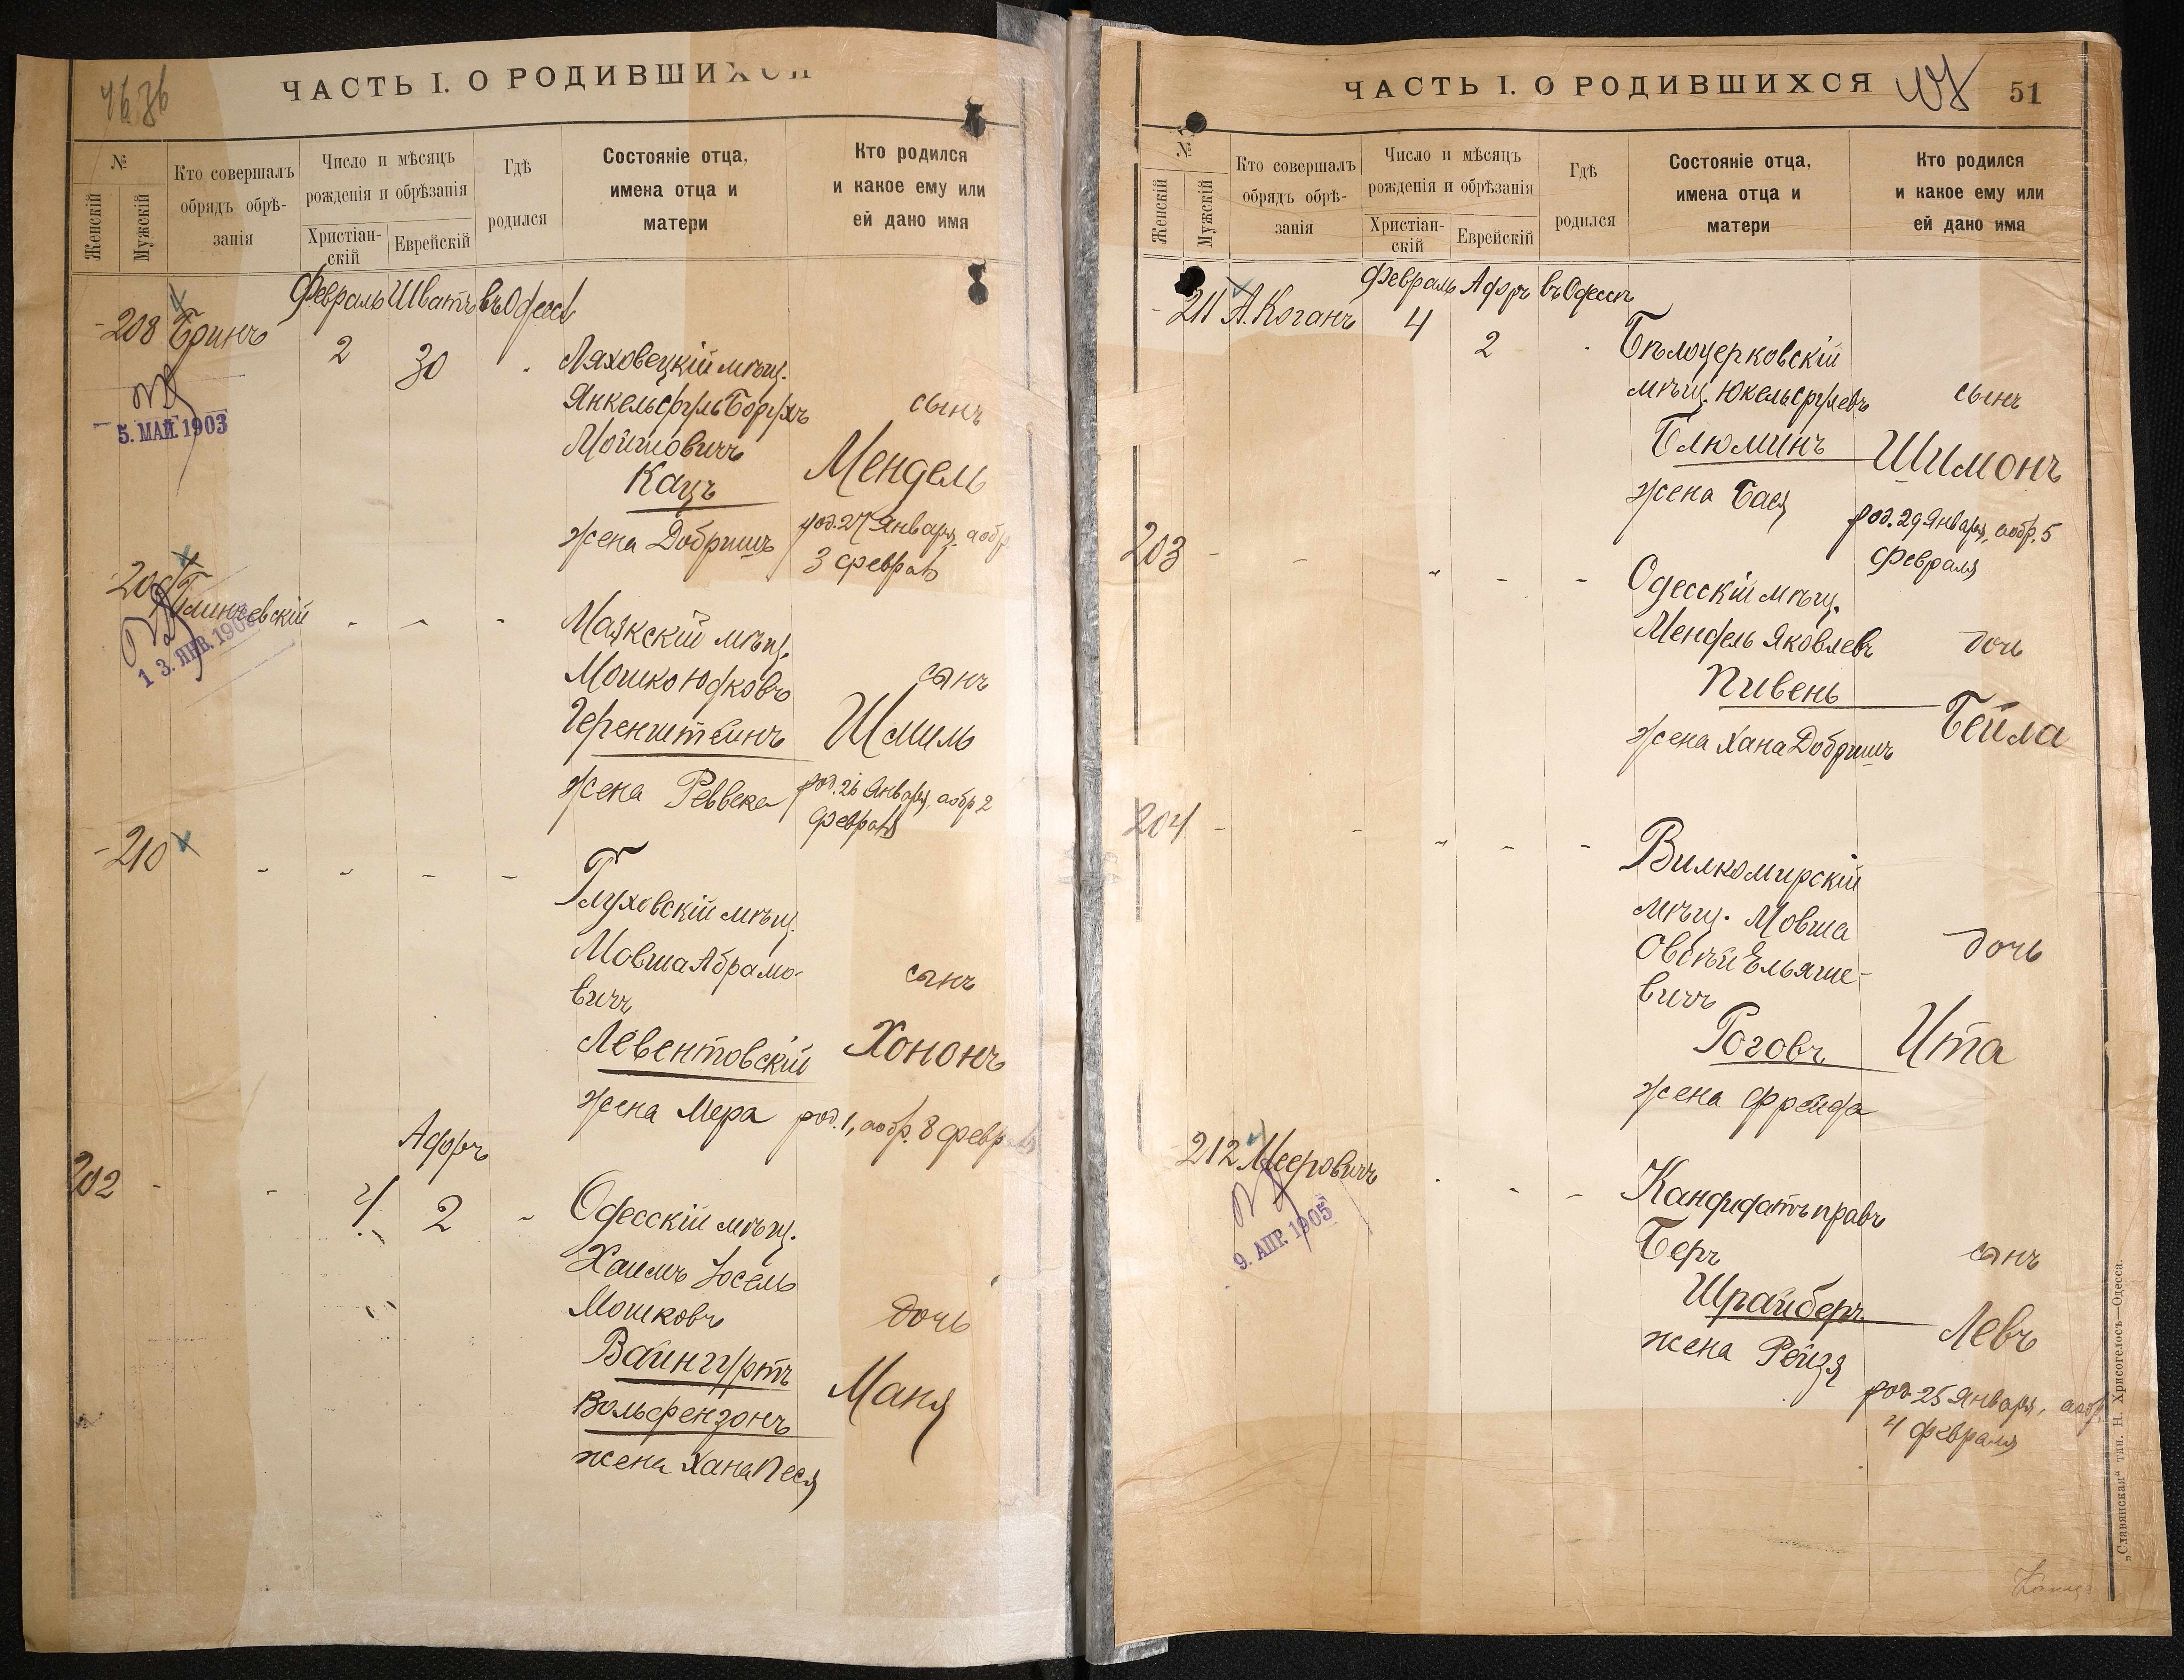 ЧАСТЬ I. О РОДИВШИХСЯ
№
Женскій
Мужскій
Кто совершалъ
обрядъ обрѣ-
занія
Число и мѣсяцъ
рожденія и обрѣзанія
Христіан-
скій
Еврейскій
Гдѣ
родился
Состояніе отца,
имена отца и
матери
Кто родился
и какое ему или
ей дано имя
Февраль Шватъ въ Одессѣ
208 Бринъ
2 30
Ляховецкій мѣщ.
Янкель Сруль Борухъ
Мойшовичъ
Кацъ
жена Добришъ
сынъ
Мендель
род. 27 Января, а обр.
3 февраля
5. МАЙ. 1903
209
Глинчевскій
13. ЯНВ.
Маякскій мѣщ.
Мошко Юдковъ
Геренштейнъ
жена Реввека
сынъ
Шмиль
род. 26 Января, а обр 2
февраля
210
Глуховскій мѣщ.
Мовша Абрамо-
вичъ
Левентовскій
жена Мера
сынъ
Хононъ
род. 1, а обр. 8 февраля
Адоръ
202
4 2
Одесскій мѣщ.
Хаимъ Іосель
Мошковъ
Вайнгуртъ
Вольфензонъ
жена Хана Песя
дочь
Маня
ЧАСТЬ I. О РОДИВШИХСЯ
51
№
Женскій
Мужскій
Кто совершалъ
обрядъ обрѣ-
занія
Число и мѣсяцъ
рожденія и обрѣзанія
Христіан-
скій
Еврейскій
Гдѣ
родился
Состояніе отца,
имена отца и
матери
Кто родился
и какое ему или
ей дано имя
Февраль Адоръ въ Одессѣ
211 А. Коганъ
4 2
Бѣлоцерковскій
мѣщ. Юкель Срулевъ
Блюминъ
жена Бася
сынъ
Шимонъ
род. 29 Января, а обр. 5
февраля
203
Одесскій мѣщ.
Мендель Яковлевъ
Пивень
жена Хана Добришъ
дочь
Бейла
204
Вилкомирскій
мѣщ. Мовша
Овсѣй Ельяше-
вичъ
Роговъ
жена Фрейда
дочь
Ита
212 Мееровичъ
9. АПР. 1905
Кандидатъ правъ
Беръ
Шрайберъ
жена Рейзя
сынъ
Левъ
род. 25 Января, а обр.
4 февраля
„Славянская“ тип. Н. Хрисогелосъ—Одесса.